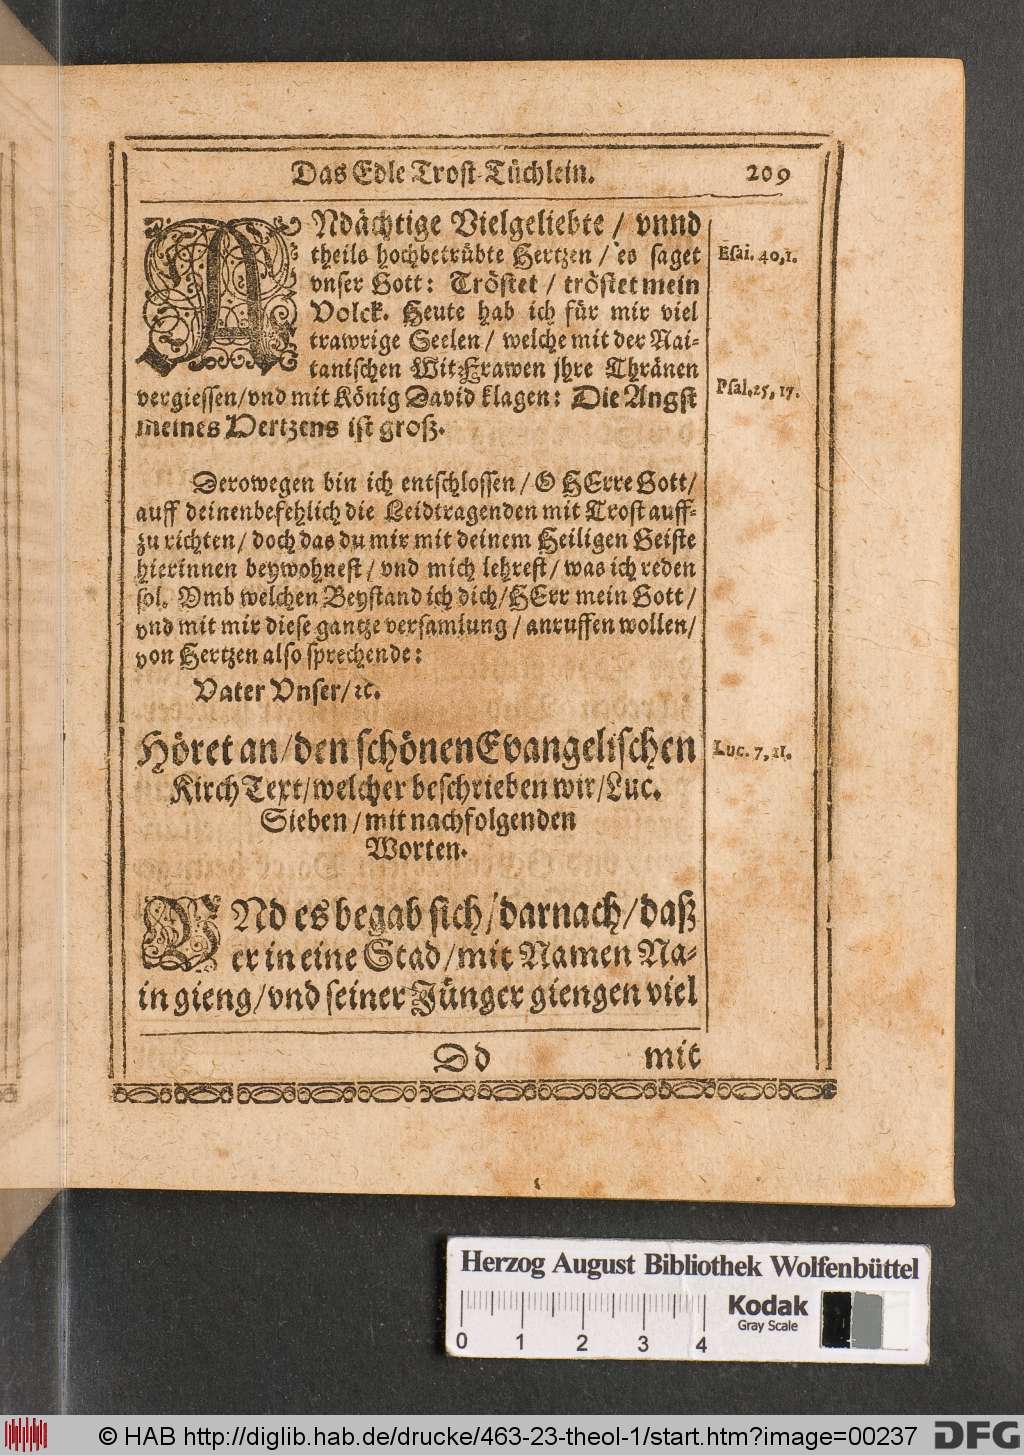 Das Edle Trost-Tüchlein. 209
ANdächtige Vielgeliebte / vnnd
theils hochbetrübte Hertzen / es saget
vnser Gott: Tröstet / tröstet mein
Volck. Heute hab ich für mir viel
trawrige Seelen / welche mit der Nai-
tanischen WitFrawen jhre Thränen
vergiessen/vnd mit König David klagen: Die Angst
meines Hertzens ist groß.
Esai. 40,1.
Psal.25, 17.
Derowegen bin ich entschlossen / O HErre Gott/
auff deinenbefehlich die Leidtragenden mit Trost auff-
zu richten / doch das du mir mit deinem Heiligen Geiste
hierinnen beywohnest / vnd mich lehrest / was ich reden
sol. Vmb welchen Beystand ich dich/HErr mein Gott/
vnd mit mir diese gantze versamlung / anruffen wollen/
von Hertzen also sprechende:
Vater Vnser/ ꝛc.
Höret an/den schönen Evangelischen
Kirch Text/welcher beschrieben wir/Luc.
Sieben / mit nachfolgenden
Worten.
Luc. 7, 11.
VNd es begab sich/darnach/daß
er in eine Stad / mit Namen Na-
in gieng/vnd seiner Jünger giengen viel
Dd mit
Herzog August Bibliothek Wolfenbüttel
0 1 2 3 4
Kodak
Gray Scale
© HAB http://diglib.hab.de/drucke/463-23-theol-1/start.htm?image=00237 DFG